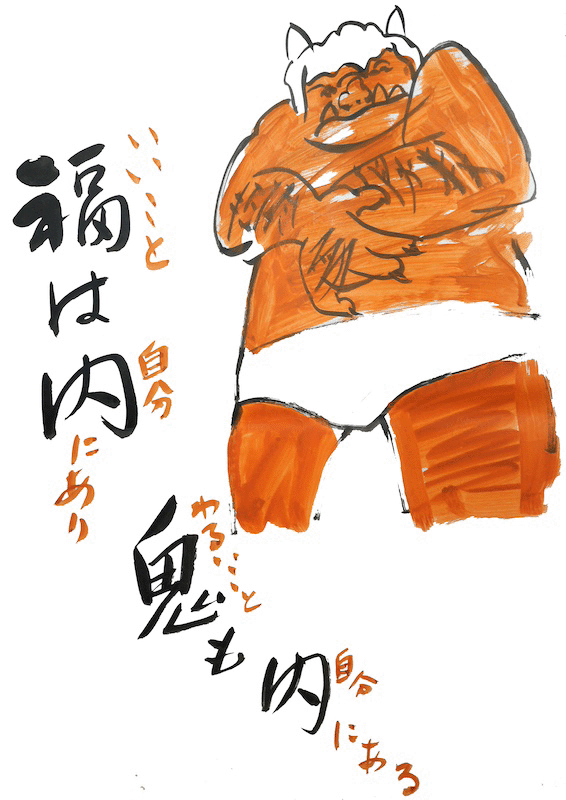 福は内にあり
いいこと
自分
鬼も内にある
わるいこと
自分